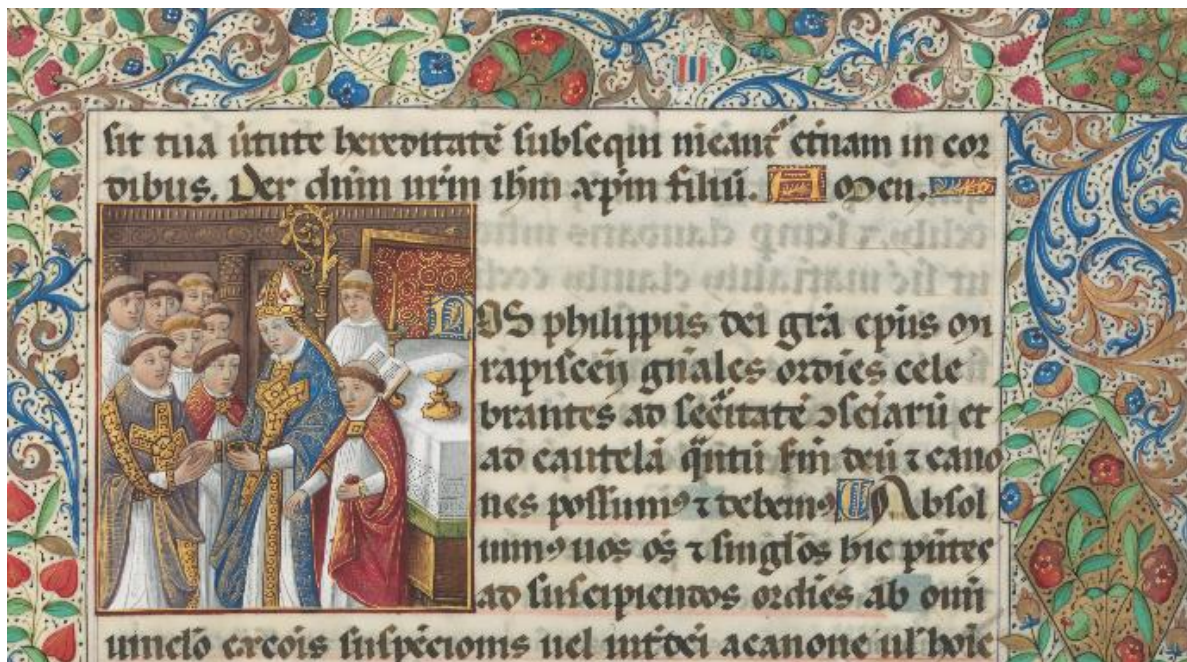 sit tua ũtute hereditatẽ subsequi meant᷑ etiam in cor
dibus. Per dñm nrm ihm xpm filiũ. Amen.
NOS philippus dei grã epũs mi
rapiscen̄ gñales ordĩes cele
brantes ad secũtatẽ ɔsciarũ et
ad cautelã q̃ntũ fm deũ ⁊ cano
nes possum⁹ ⁊ debem⁹ Absol
uim⁹ uos oẽs ⁊ singlõs hic pñtes
ad suscipiendos ordĩes ab omĩ
uinclõ excõis suspẽcionis uel int᷑dci a canone ul hoĩe